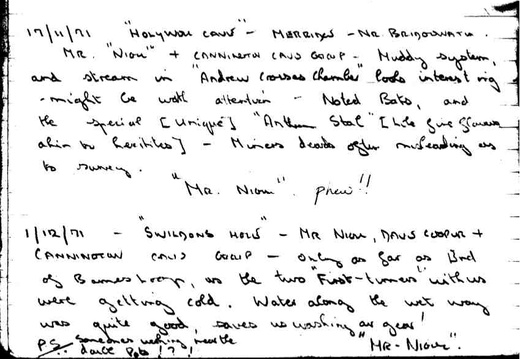 17/11/71 "HOLYWELL CAVE" - MERRIDGE - NR. BRIDGWATER.
MR. "NIOW" + CANNINGTON CAVE GROUP - Muddy system,
and stream in "Andrew Crosses Chamber" looks interesting
- might be worth attention - Noted Bats, and
the special [Unique] "Stal" [like
akin to helictites] - Miners deads often misleading as
to survey.
"MR. NIOW". phew!!
1/12/71 - "SWILDONS HOLE" - MR NIOW, DAVE COOPER +
CANNINGTON CAVE GROUP - only as far as End
of Barnes Loop, as the two "First-timers" with us
were getting cold. Water along the wet way
was quite good, saves us washing our gear!
P.S. Someones nicking
dark Pots!?! "MR-NIOW".